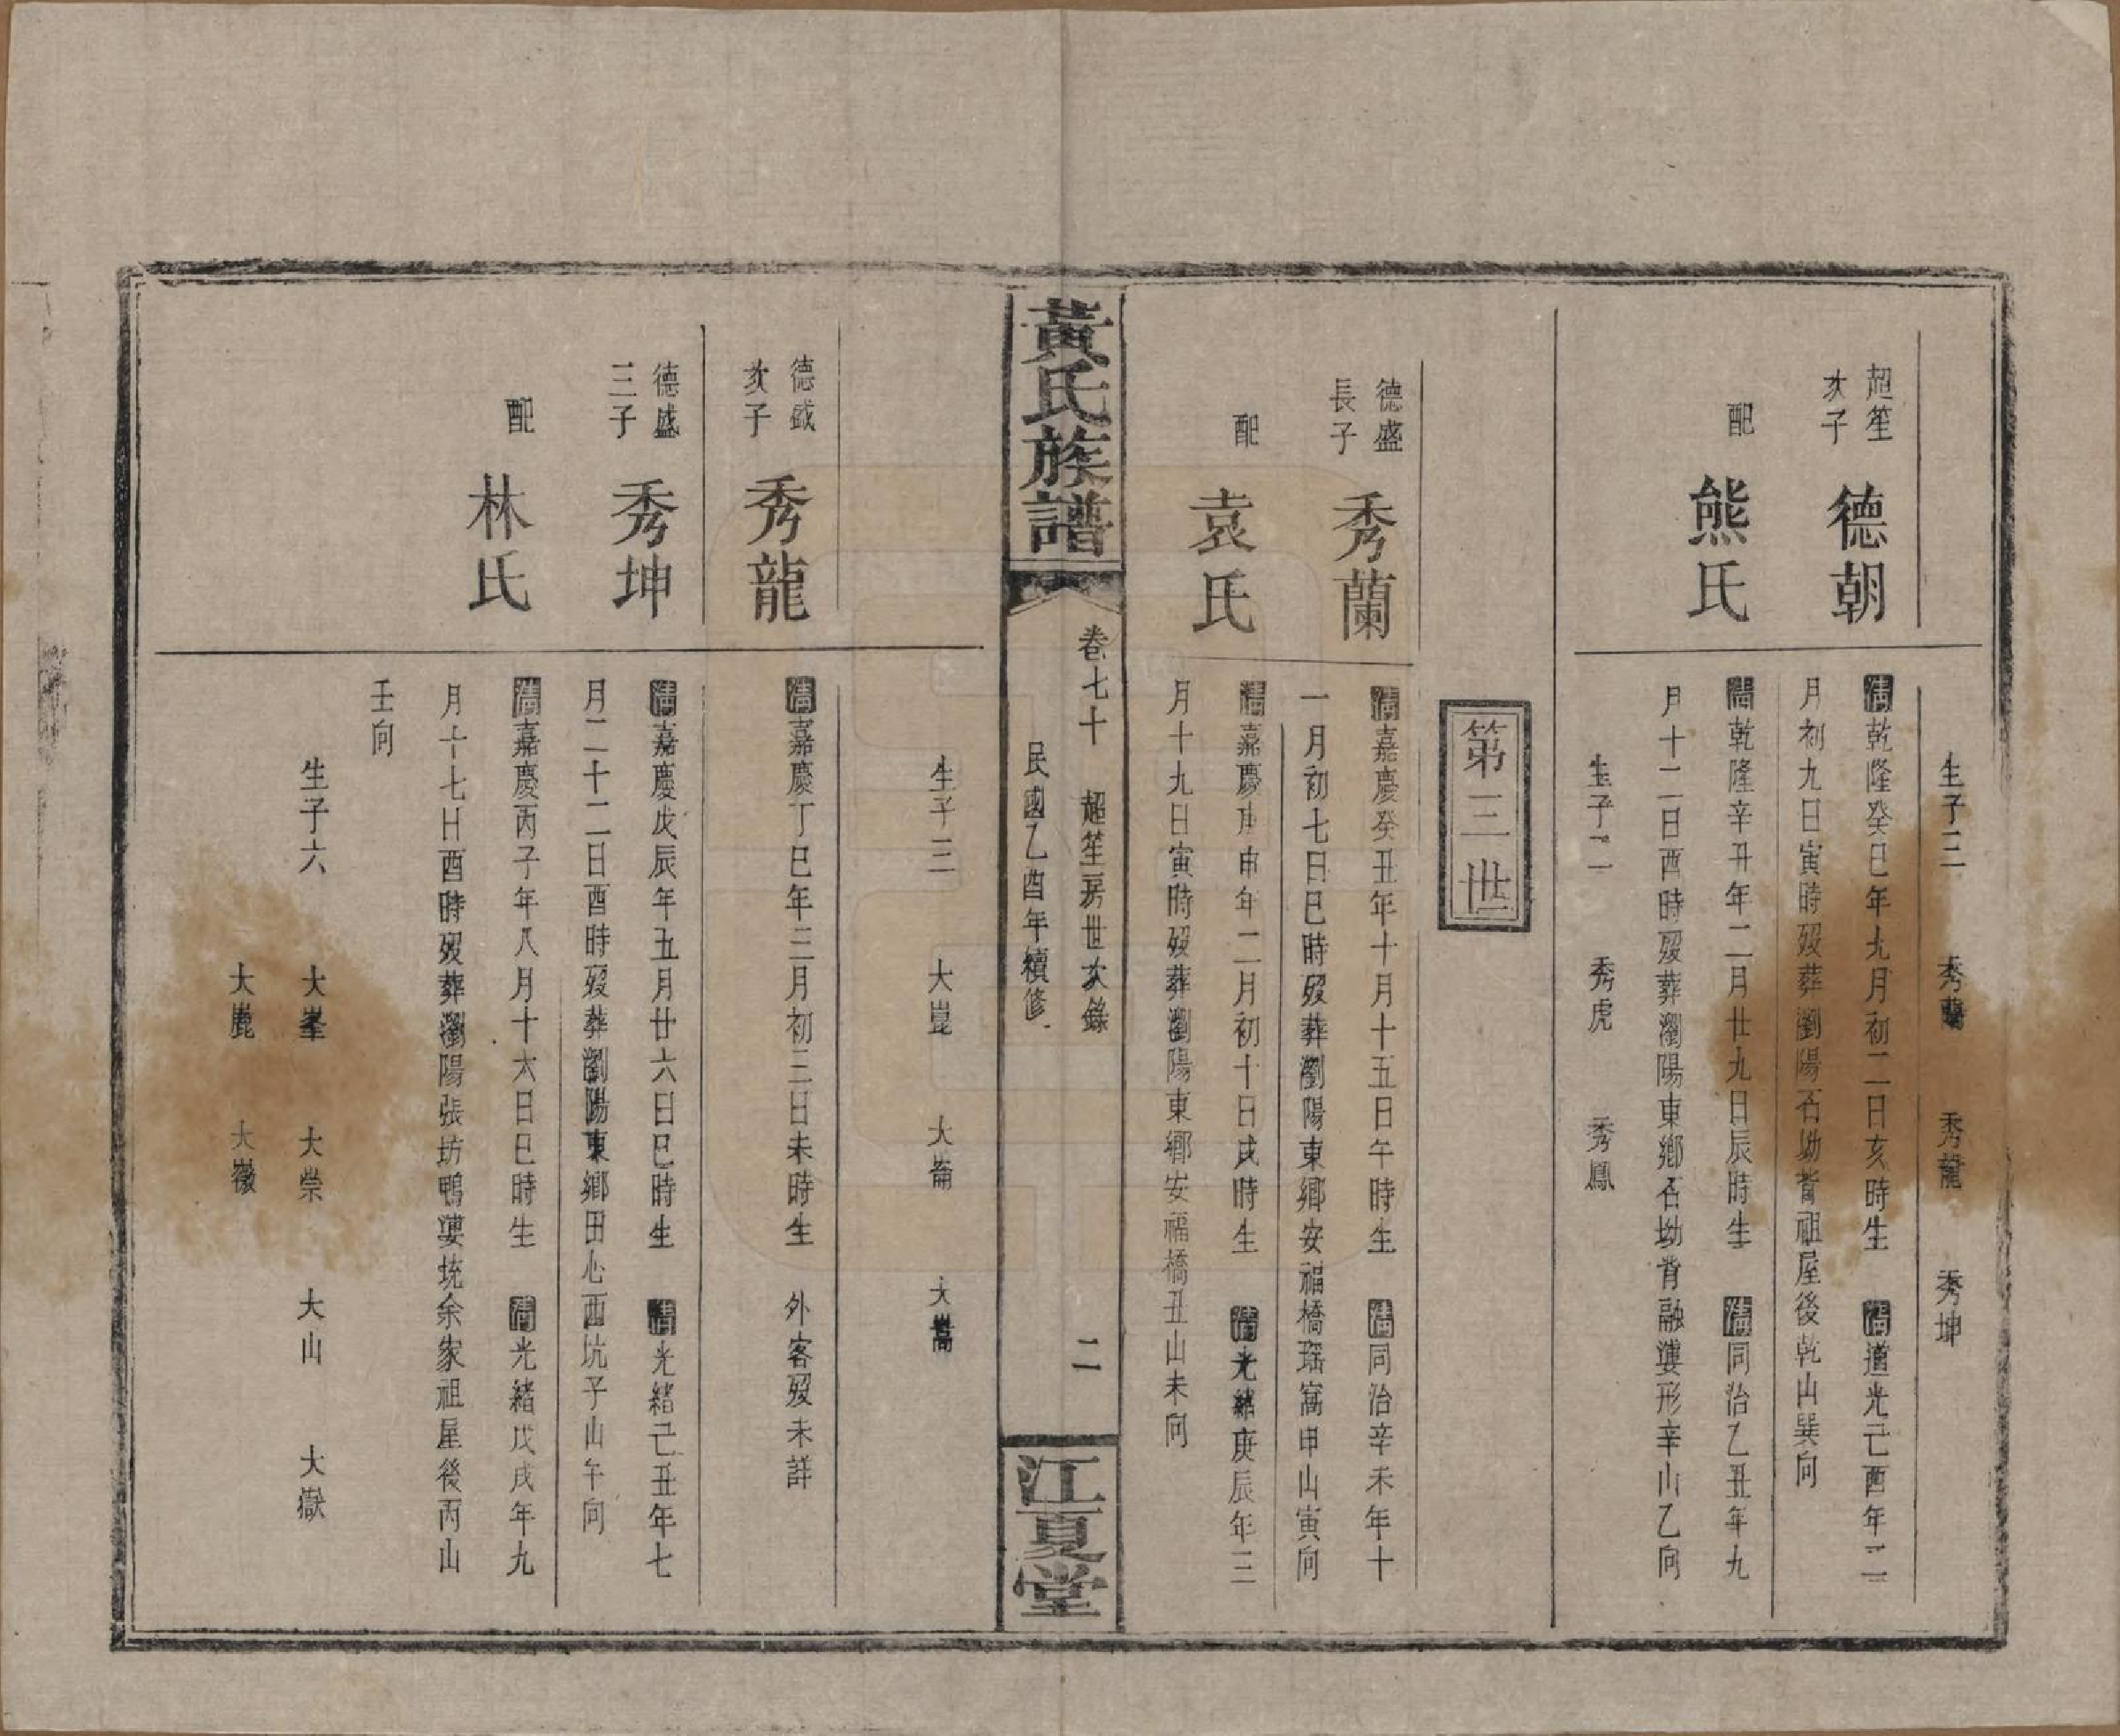 生子三 秀蘭 秀龍 秀坤
超笙次子 德朝
清乾隆癸巳年九月初二日亥時生 清道光己酉年二
月初九日寅時歿葬瀏陽石坳背祖屋後乾山巽向
配 熊氏
清乾隆辛丑年二月廿九日辰時生 清同治乙丑年九
月十二日酉時歿葬瀏陽東鄉石坳背融漊形辛山乙向
生子二 秀虎 秀鳳
第三世
德盛長子 秀蘭
清嘉慶癸丑年十月十五日午時生 清同治辛未年十
一月初七日巳時歿葬瀏陽東鄉安福橋瑶窩申山寅向
配 袁氏
清嘉慶庚申年二月初十日戌時生 清光緒庚辰年三
月十九日寅時歿葬瀏陽東鄉安福橋丑山未向
黃氏族譜
卷七十 超笙房世次錄 二
民國乙酉年續修
江夏堂
生子三 大崑 大崙 大嵩
德盛次子 秀龍
清嘉慶丁巳年三月初三日未時生 外客歿未詳
德盛三子 秀坤
清嘉慶戊辰年五月廿六日巳時生 清光緒己丑年七
月二十二日酉時歿葬瀏陽東鄉田心西坑子山午向
配 林氏
清嘉慶丙子年八月十六日巳時生 清光緒戊戌年九
月十七日酉時歿葬瀏陽張坊鴨漊垸余家祖屋後丙山
壬向
生子六 大峯 大崇 大山 大嶽
大嵬 大嶶